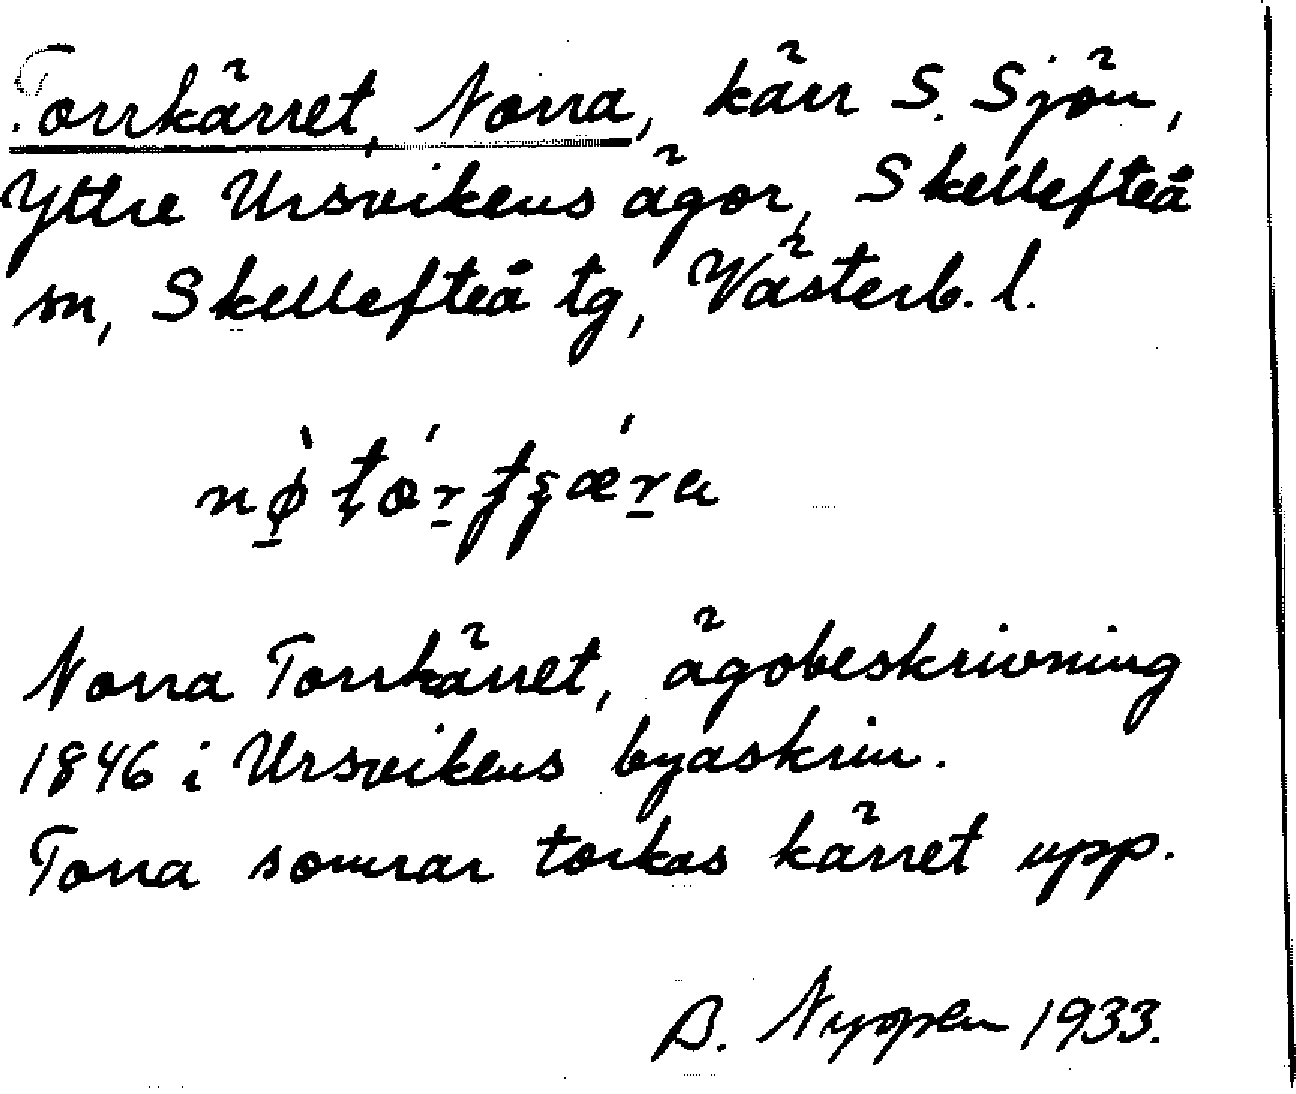 Torrkärret, Norra, kärr S. Sjön,
Yttre Ursvikens ägor, Skellefteå
sn, Skellefteå tg, Västerb. l.
nø̠̀ tó̠r̠tʂǽr̠a
Norra Torrkärret, ägobeskrivning
1846 i Ursvikens byaskrin.
Torra somrar torkas kärret upp.
B. Nyppen 1933.